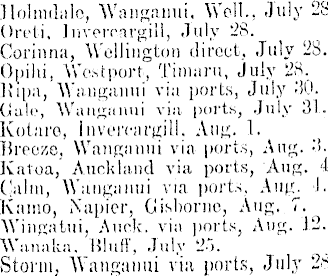 Holmdale, Wanganui, Well., July 28
Oreti, Invercargill, July 28.
Corinna, Wellington direct, July 28.
Opihi, Westport, Timaru, July 28.
Ripa, Wanganui via ports, July 30.
Gale, Wanganui via ports, July 31.
Kotare, Invercargill, Aug. 1.
Breeze, Wanganui via ports, Aug. 3.
Katoa, Auckland via ports, Aug. 4
Calm, Wanganui via ports, Aug. 4.
Kamo, Napier, Gisborne, Aug. 7.
Wingatui, Auck. via ports, Aug. 12.
Wanaka, Bluff, July 25.
Storm, Wanganui via ports, July 28